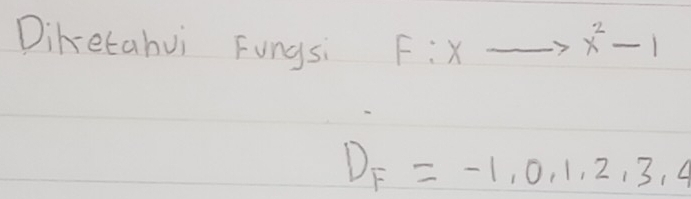 Diketahui Fungsi F : x → x² - 1
D_F = -1, 0, 1, 2, 3, 4